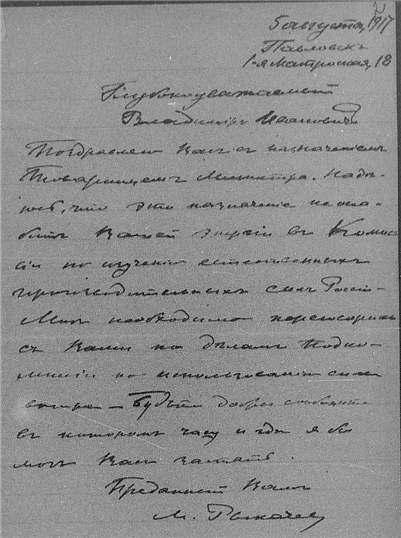 5 августа, 1917
Павловскъ
1-я Матросская, 18
Глубокоуважаемый
Владиміръ Ивановичъ
Поздравляю Васъ съ назначеніемъ
Товарищемъ Министра. Надѣ-
юсь, что это назначеніе не осла-
битъ Вашей энергіи въ Комис-
сіи по изученію естественныхъ
производительныхъ силъ Россіи.
Мнѣ необходимо переговорить
съ Вами по дѣламъ Подко-
миссіи по использованію силы
вѣтра — Будьте добры сообщить
въ которомъ часу и гдѣ я бы
могъ Васъ застать.
Преданный Вамъ
М. Рыкачев